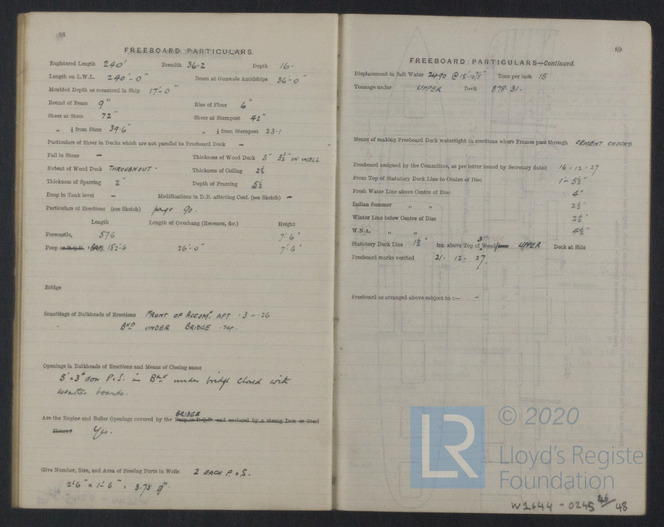 88
FREEBOARD PARTICULARS.
Registered Length 240' Breadth 36.2 Depth 16.
Length on L.W.L. 240'-0" Beam at Gunwale Amidships 36'-0"
Moulded Depth as measured in Ship 17'-0"
Round of Beam 9" Rise of Floor 6"
Sheer at Stem 72" Sheer at Sternpost 42"
" ⅛ from Stem 39.6 " ⅛ from Sternpost 23.1
Particulars of Sheer in Decks which are not parallel to Freeboard Deck –
Fall in Sheer – Thickness of Wood Deck 3" 2½" IN WELL
Extent of Wood Deck THROUGHOUT. Thickness of Ceiling 2½
Thickness of Sparring 2" Depth of Framing 5½
Drop in Tank level – Modifications in D.B. affecting Coef. (see Sketch) –
Particulars of Erections (see Sketch) page 90.
Length Length of Overhang (Recesses, &c.) Height
Forecastle, 57.6 7'.6"
Poop 152.6 26'-0" 7'.6"
Bridge
Scantlings of Bulkheads of Erections FRONT OF ACCOM. AFT .3 - .26
" BHD UNDER BRIDGE .34.
Openings in Bulkheads of Erections and Means of Closing same
5' × 3' door P & S. in BHD under bridge closed with
weather boards.
Are the Engine and Boiler Openings covered by the BRIDGE
Yes.
Give Number, Size, and Area of Freeing Ports in Wells 2 EACH P & S.
2'.6" × 1'.6" = 3.75
89
FREEBOARD PARTICULARS—Continued.
Displacement in Salt Water 2490 @ Tons per inch 18
Tonnage under UPPER Deck 878.31.
Means of making Freeboard Deck watertight in erections where Frames pass through CEMENT CHOCKS
Freeboard assigned by the Committee, as per letter issued by Secretary dated 16-12-27
From Top of Statutory Deck Line to Centre of Disc 1'-5½"
Fresh Water Line above Centre of Disc 4"
Indian Summer " " 2½"
Winter Line below Centre of Disc 2½"
W.N.A. " " 4½"
Statutory Deck Line 1½" ins. above Top of Wood 3" UPPER Deck at Side
Freeboard marks verified 21. 12. 27.
Freeboard as arranged above subject to :— –
© 2020
LR
Lloyd's Register
Foundation
W1644 - 0245 46/48